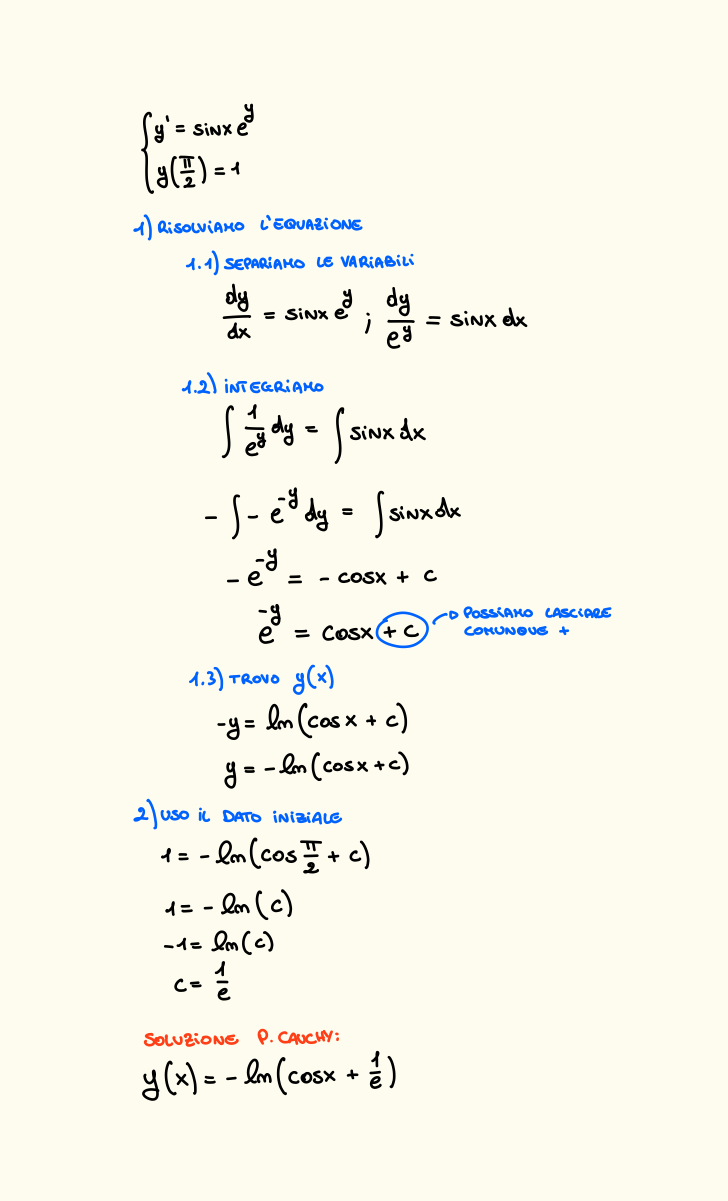 { y' = sinx e^y
y(π/2) = 1
1) RISOLVIAMO L'EQUAZIONE
1.1) SEPARIAMO LE VARIABILI
dy/dx = sinx e^y ; dy/e^y = sinx dx
1.2) INTEGRIAMO
∫ 1/e^y dy = ∫ sinx dx
- ∫ - e^-y dy = ∫ sinx dx
- e^-y = - cosx + c
e^-y = cosx + c → POSSIAMO LASCIARE
COMUNQUE +
1.3) TROVO y(x)
-y = ln(cosx + c)
y = -ln(cosx + c)
2) USO IL DATO INIZIALE
1 = -ln(cos π/2 + c)
1 = -ln(c)
-1 = ln(c)
c = 1/e
SOLUZIONE P. CAUCHY:
y(x) = -ln(cosx + 1/e)